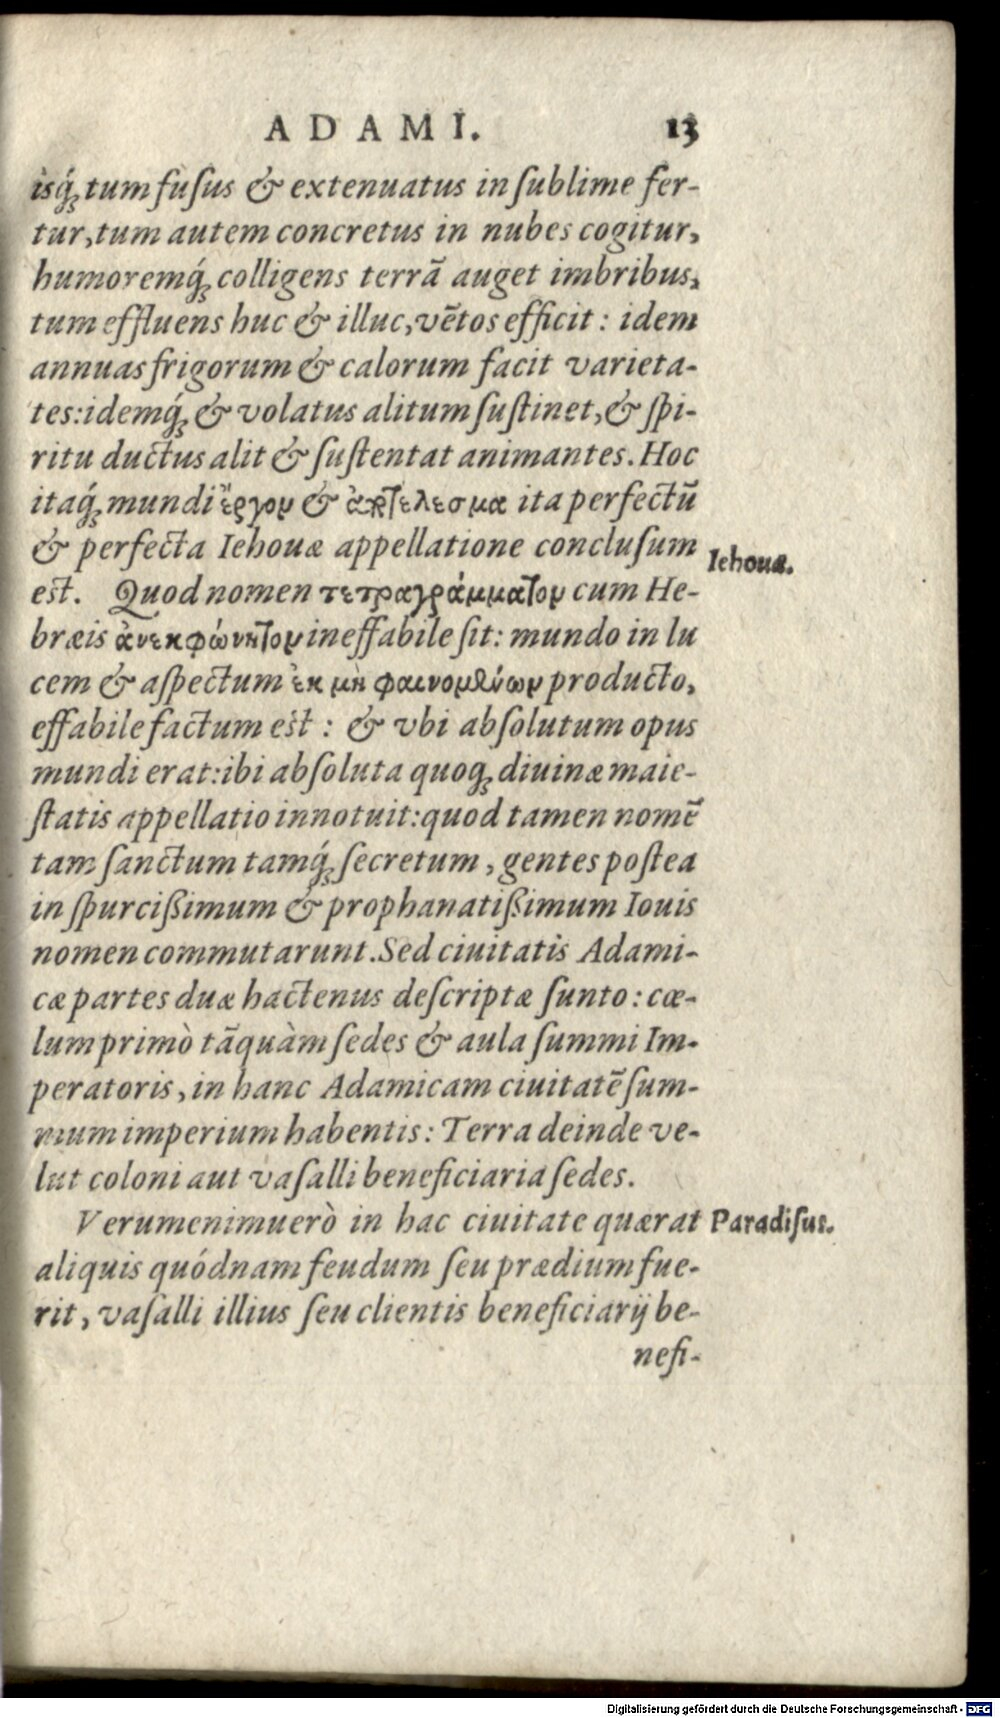 ADAMI. 13
isq́ꝫ tum fusus & extenuatus in ſublime fer-
tur, tum autem concretus in nubes cogitur,
humoremq́ꝫ colligens terrã auget imbribus,
tum effluens huc & illuc, vẽtos efficit: idem
annuas frigorum & calorum facit varieta-
tes: idemq́ꝫ & volatus alitum ſuſtinet, & ſpi-
ritu ductus alit & ſuſtentat animantes. Hoc
itaq́ꝫ mundi ἔργον & ἀποτέλεσμα ita perfectũ
& perfecta Iehouæ appellatione concluſum
Iehouæ.
est. Quod nomen τετραγράμματον cum He-
bræis ἀνεκφώνητον ineffabile ſit: mundo in lu
cem & aſpectum ἐκ μὴ φαινομένων producto,
effabile factum est: & vbi abſolutum opus
mundi erat: ibi abſoluta quoqꝫ diuinæ maie-
ſtatis appellatio innotuit: quod tamen nomẽ
tam ſanctum tamq́ꝫ ſecretum, gentes poſtea
in ſpurciſſimum & prophanatiſſimum Iouis
nomen commutarunt. Sed ciuitatis Adami-
cæ partes duæ hactenus deſcriptæ ſunto: cœ-
lum primò tãquàm ſedes & aula ſummi Im-
peratoris, in hanc Adamicam ciuitatẽ ſum-
mum imperium habentis: Terra deinde ve-
lut coloni aut vaſalli beneficiaria ſedes.
Verumenimuerò in hac ciuitate quærat
Paradiſus.
aliquis quódnam feudum ſeu prædium fue-
rit, vaſalli illius ſeu clientis beneficiarij be-
nefi-
Digitalisierung gefördert durch die Deutsche Forschungsgemeinschaft - DFG